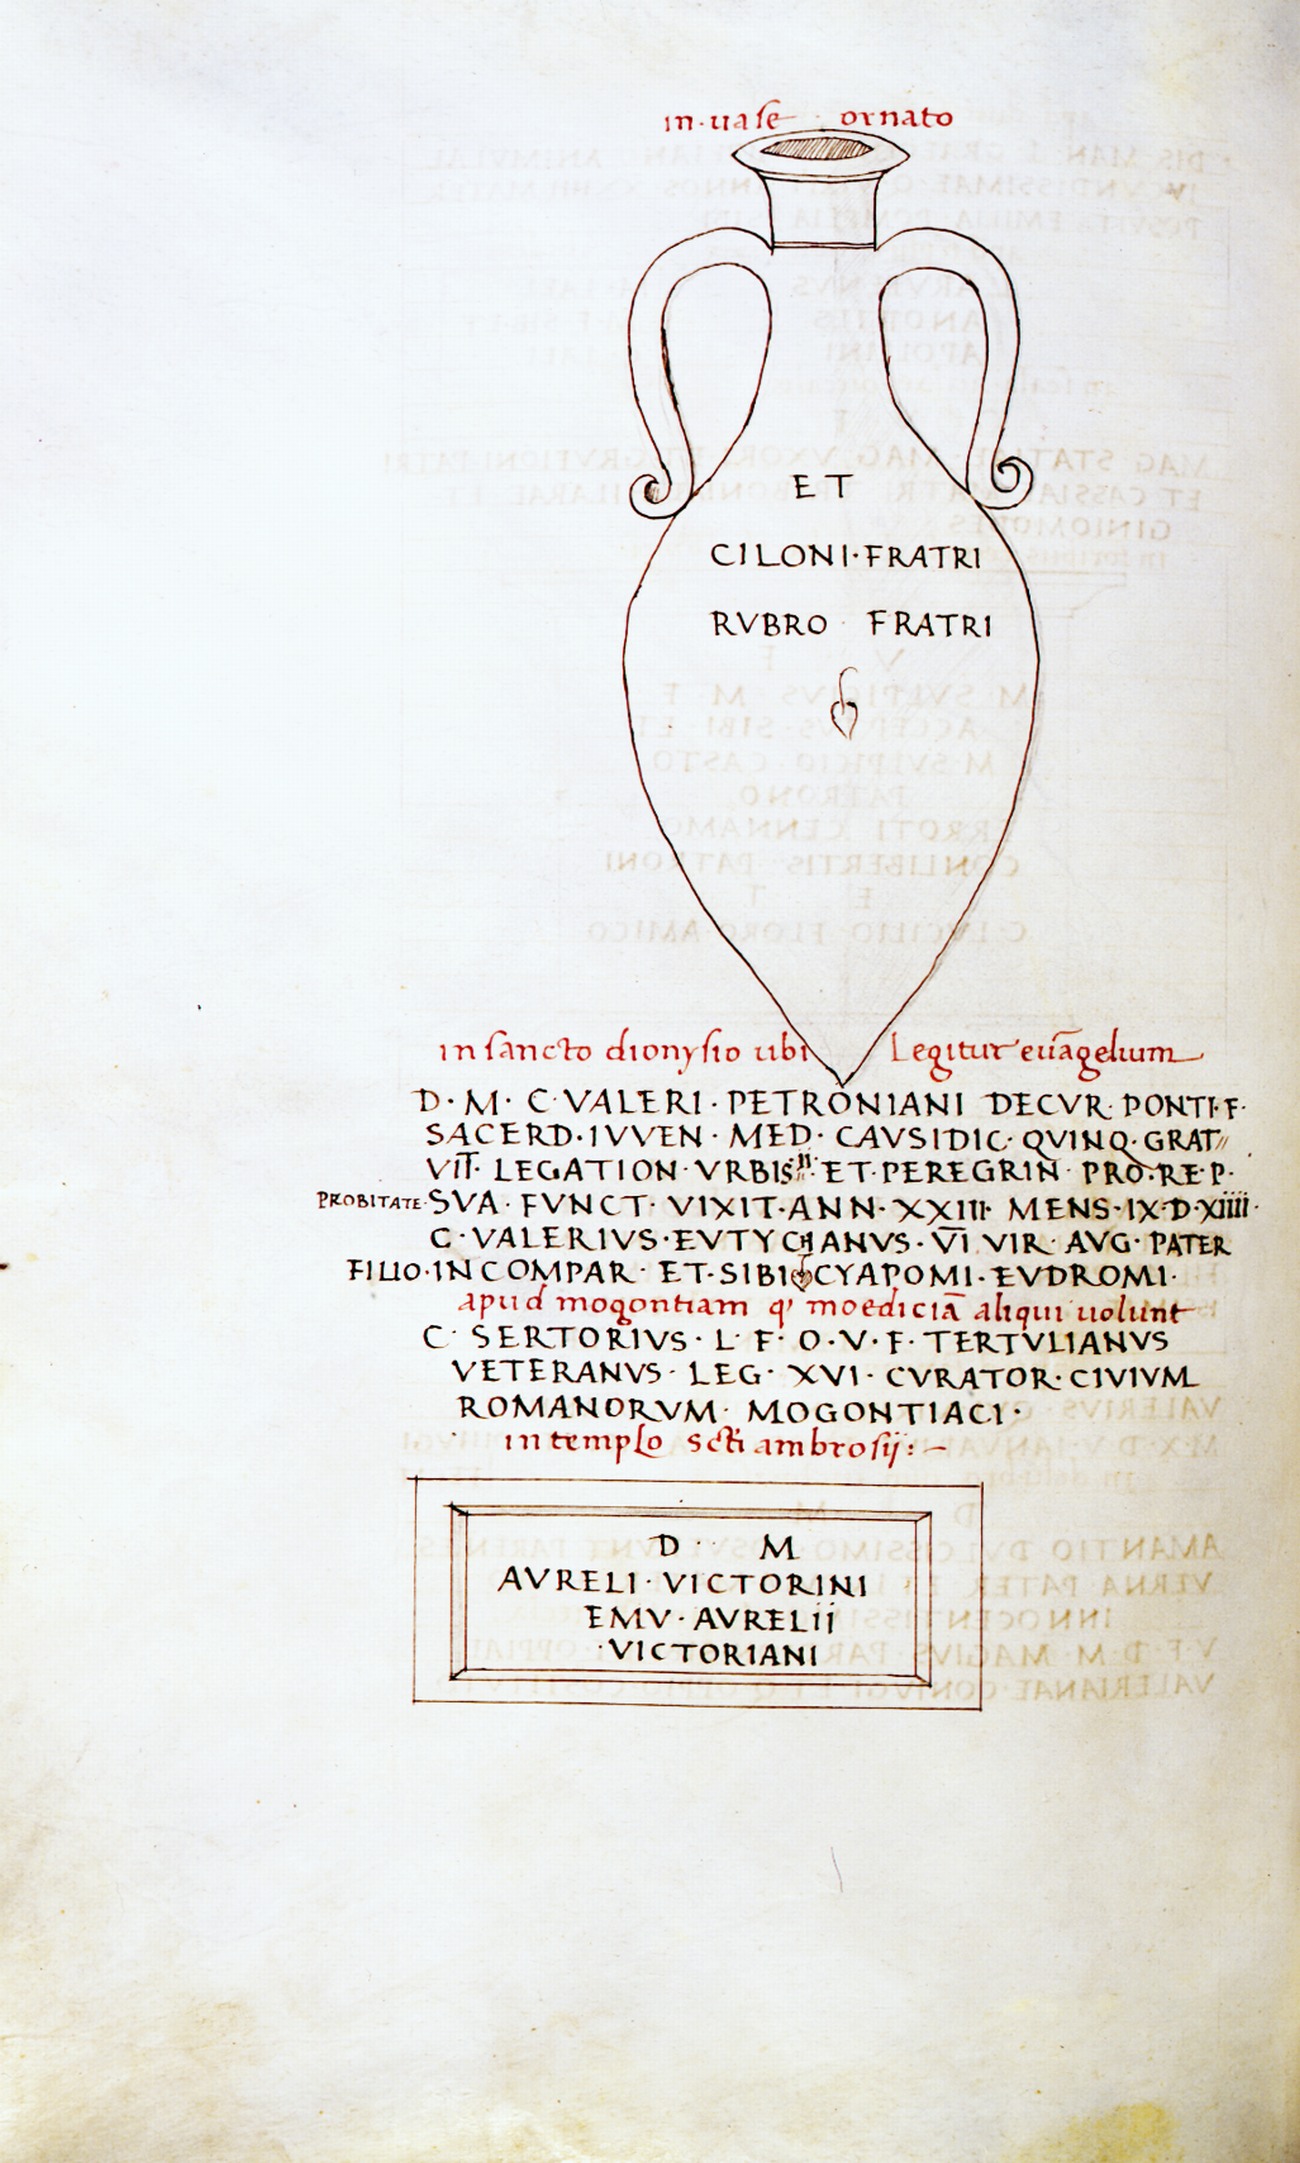 in·uase · ornato
ET
CILONI·FRATRI
RVBRO · FRATRI
in sancto dionysio ubi Legitur euāgelium
D·M· C·VALERI·PETRONIANI DECVR·PONTI·F·
SACERD·IVVEN·MED·CAVSIDIC·QVINQ·GRAT
VIT·LEGATION·VRBIS·ET·PEREGRIN·PRO·RE·P·
PROBITATE·SVA·FVNCT·VIXIT·ANN·XXIII·MENS·IX·D·XIIII·
C·VALERIVS·EVTYCHANVS·VI VIR·AVG·PATER
FILIO·INCOMPAR·ET·SIBI CYAPOMI·EVDROMI·
apud mogontiam q' moediciā aliqui uolunt
C·SERTORIVS·L·F·O·V·F·TERTVLIANVS
VETERANVS·LEG·XVI·CVRATOR·CIVIVM
ROMANORVM·MOGONTIACI·
in templo scti ambrosij:~
D·· M
AVRELI·VICTORINI
EMV·AVRELII
·VICTORIANI